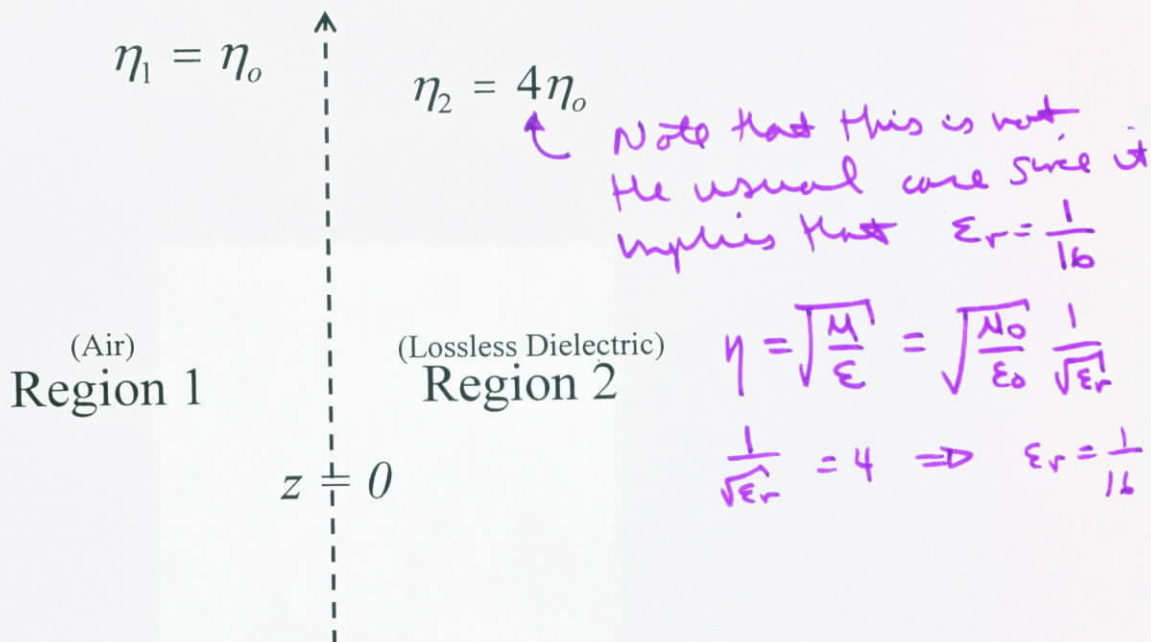 η₁ = ηₒ
η₂ = 4ηₒ
Note that this is not
the usual case since it
implies that εᵣ = 1/16
(Air)
Region 1
(Lossless Dielectric)
Region 2
η = √(μ/ε) = √(μ₀/ε₀) 1/√εᵣ
1/√εᵣ = 4 ⇒ εᵣ = 1/16
z = 0